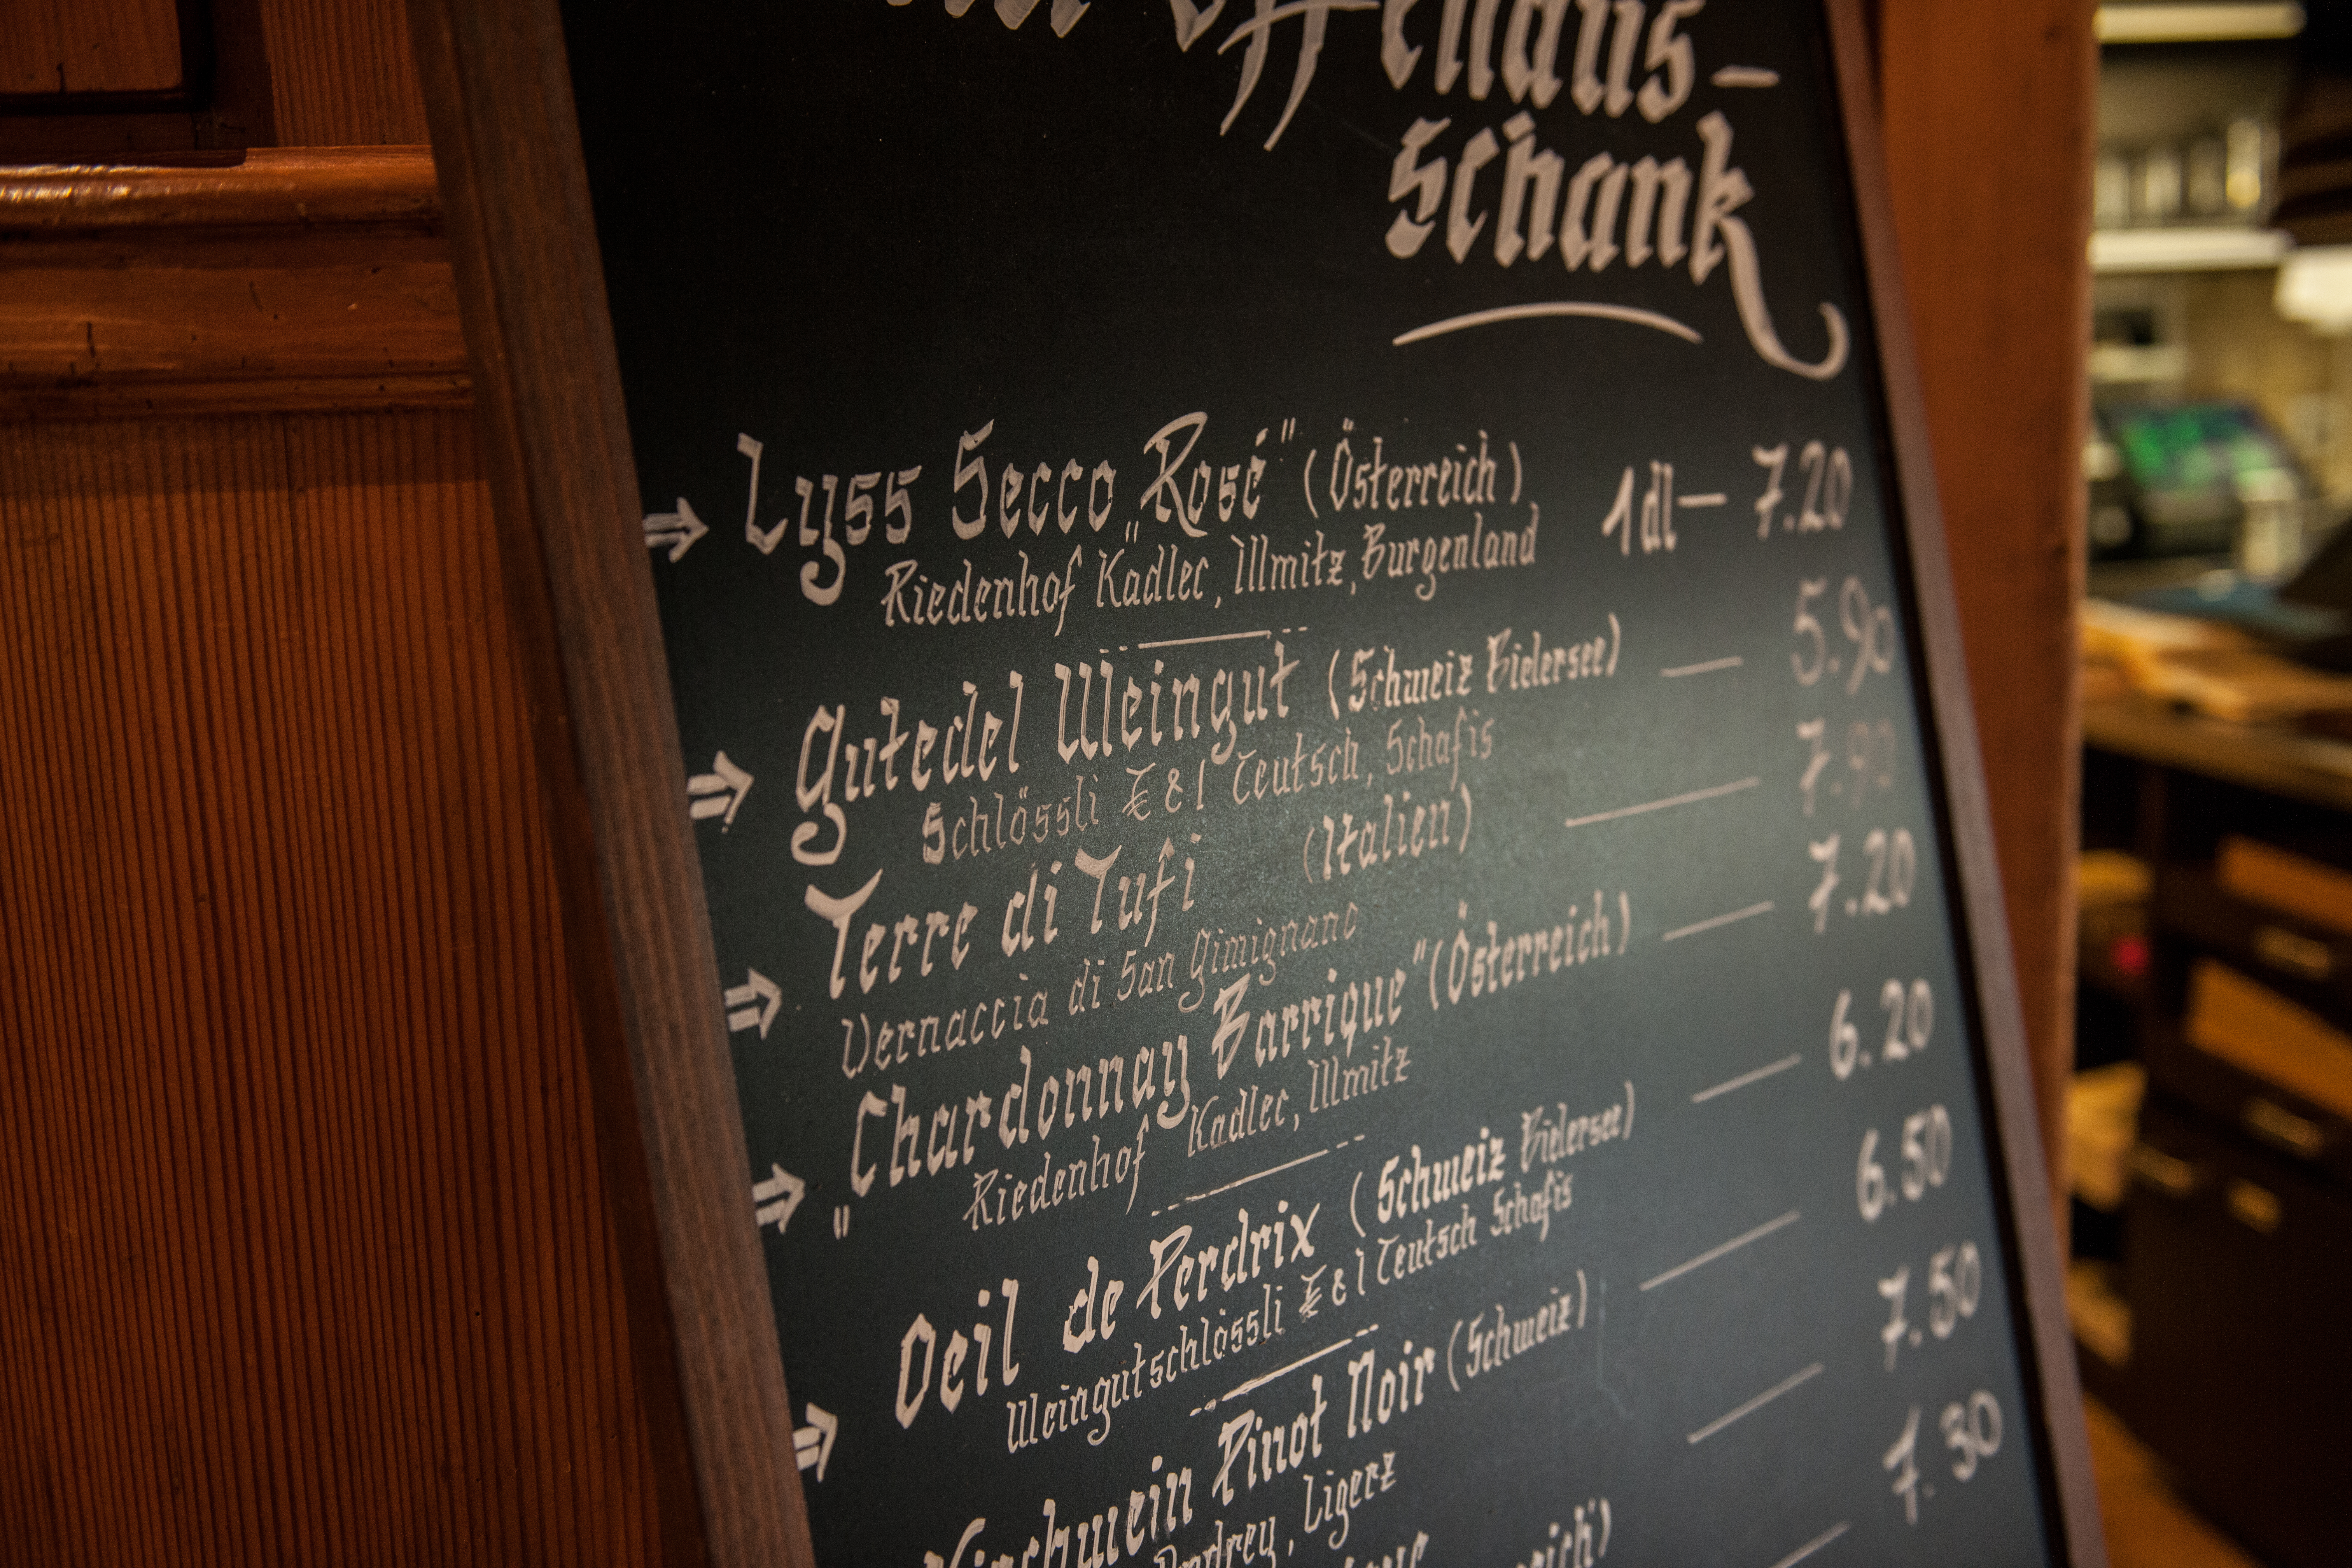 Offenaus-
schank
⇒ Lyss Secco „Rosé“ (Österreich) 1dl — 7.20
Riedenhof Kadlec, Illmitz, Burgenland
⇒ Gutedel Weingut (Schweiz Bielersee) — 5.90
Schlössli E & I Teutsch, Schafis
⇒ Terre di Tufi (Italien) — 7.90
Vernaccia di San Gimignano
⇒ „Chardonnay Barrique“ (Österreich) — 7.20
Riedenhof Kadlec, Illmitz
⇒ Oeil de Perdrix (Schweiz Bielersee) — 6.20
Weingutschlössli E & I Teutsch Schafis
Pinot Noir (Schweiz) — 6.50
Ligerz
— 7.50
— 7.30